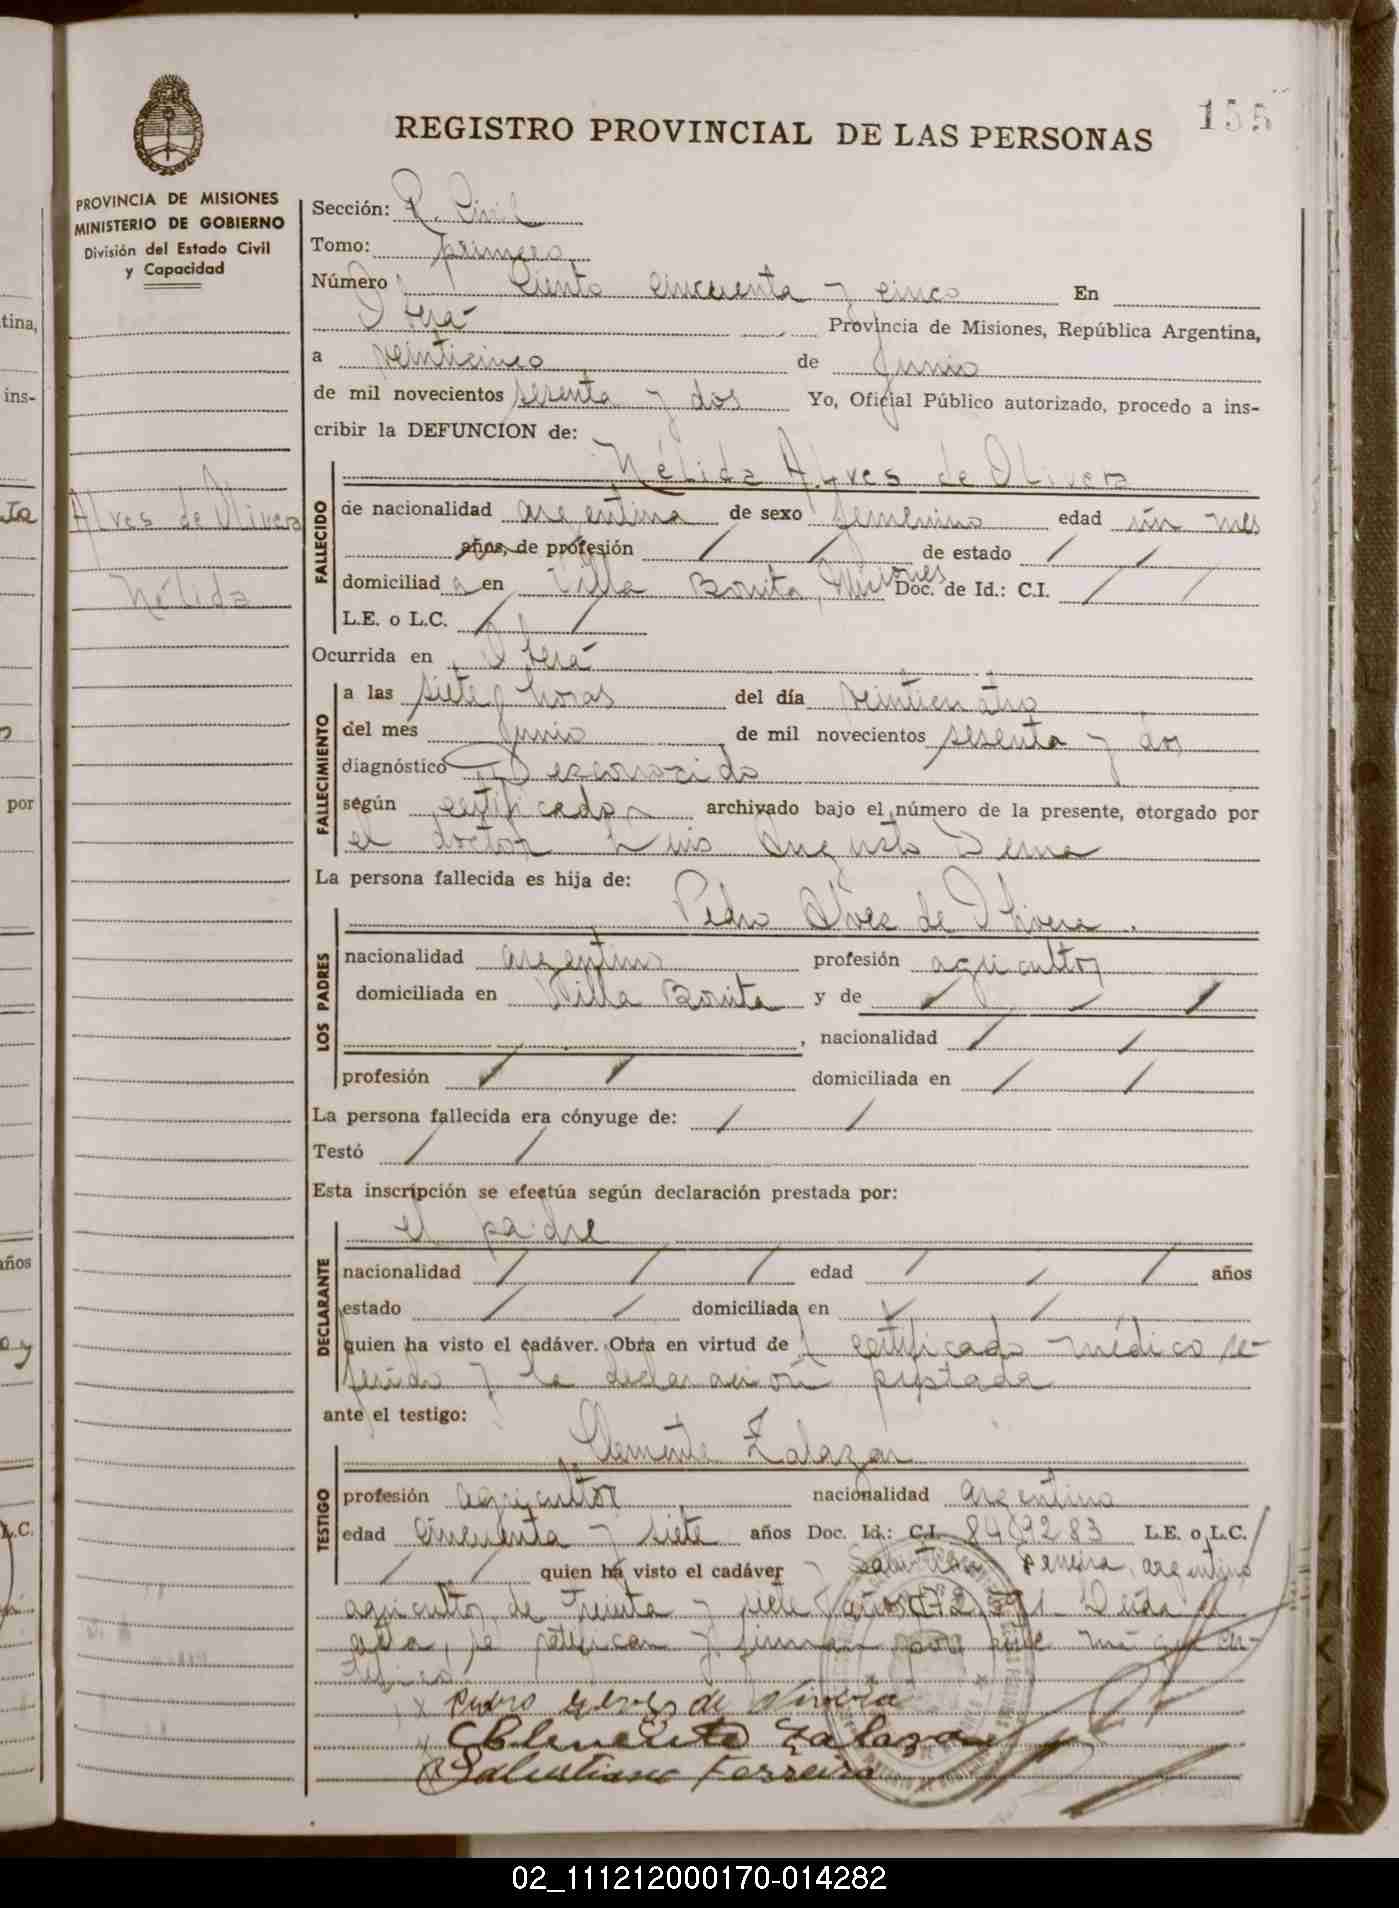 155
REGISTRO PROVINCIAL DE LAS PERSONAS
PROVINCIA DE MISIONES
MINISTERIO DE GOBIERNO
División del Estado Civil
y Capacidad
Alves de Olivera
Nélida
Sección: R. Civil
Tomo: primero
Número Ciento cincuenta y cinco En
Oberá Provincia de Misiones, República Argentina,
a veinticinco de Junio
de mil novecientos sesenta y dos Yo, Oficial Público autorizado, procedo a ins-
cribir la DEFUNCION de:
Nélida Alves de Olivera
FALLECIDO
de nacionalidad argentina de sexo femenino edad un mes
años, de profesión / / de estado / /
domiciliad a en Villa Bonita, Misiones Doc. de Id.: C.I. / /
L.E. o L.C. / /
Ocurrida en Oberá
FALLECIMIENTO
a las siete horas del día veinticuatro
del mes Junio de mil novecientos sesenta y dos
diagnóstico Desconocido
según certificado archivado bajo el número de la presente, otorgado por
el doctor Luis Augusto Derna
La persona fallecida es hija de:
Pedro Alves de Olivera.
LOS PADRES
nacionalidad argentino profesión agricultor
domiciliada en Villa Bonita y de / / /
, nacionalidad / /
profesión / / domiciliada en / /
La persona fallecida era cónyuge de: / /
Testó / /
Esta inscripción se efectúa según declaración prestada por:
el padre
DECLARANTE
nacionalidad / / / edad / / / años
estado / / domiciliada en / /
quien ha visto el cadáver. Obra en virtud de certificado médico re-
ferido y la declaración prestada
ante el testigo:
Clemente Zalazar
TESTIGO
profesión agricultor nacionalidad argentino
edad cincuenta y siete años Doc. Id.: C.I. 8409283 L.E. o L.C.
/ / quien ha visto el cadáver y Salustiano Ferreira, argentino
agricultor de treinta y siete años Leída el
acta, la ratifican y firman por ante mí que cer-
tifico
x Pedro Alves de Olivera
Clemente Zalazar
Salustiano Ferreira
02_111212000170-014282